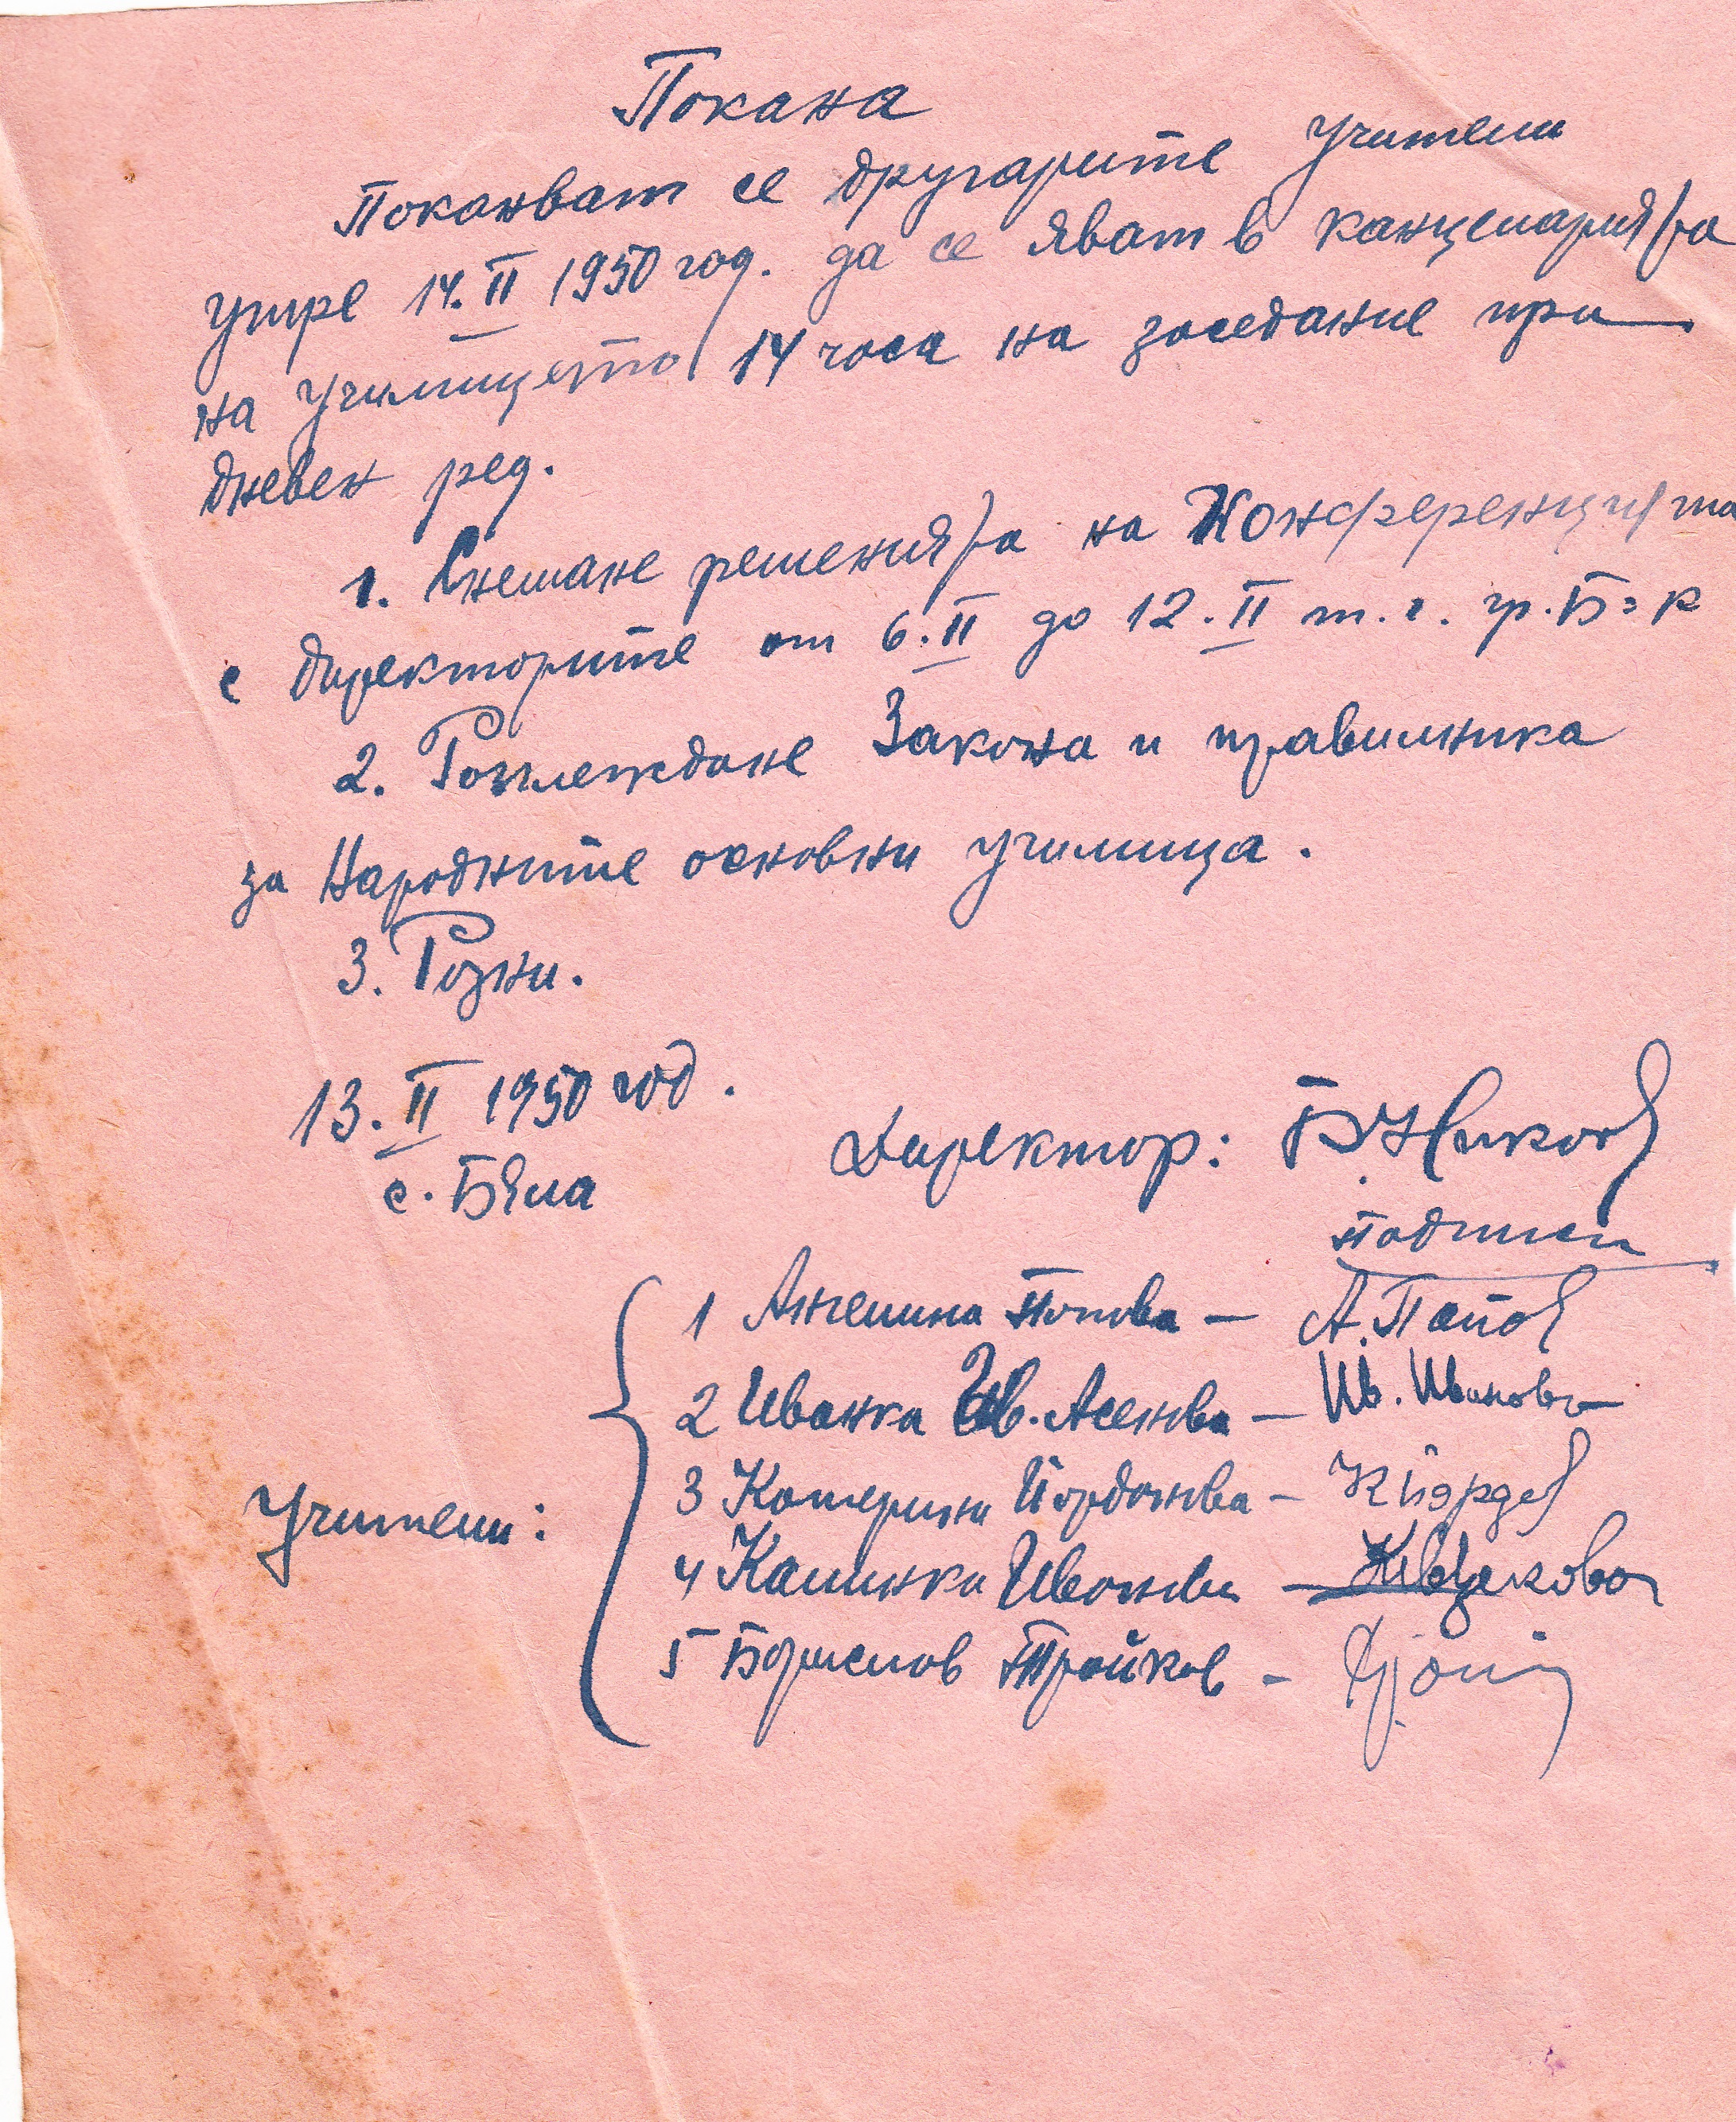 Покана
Поканват се другарите учители
утре 14. II 1950 год. да се яват в канцеларията
на училището 14 часа на заседание при
дневен ред.
1. Снемане решенията на конференцията
с директорите от 6. II до 12. II т. г. гр. Б=к
2. Разглеждане Закона и правилника
за Народните основни училища.
3. Разни.
13. II 1950 год.
с. Бяла
Директор: Б. Ников
подписи
Учители:
1 Ангелина Попова – А. Попов
2 Иванка Ив. Асенова – Ив. Иванова
3 Катерина Йорданова – К Йорд
4 Калинка Иванова –
5 Борислав Тройков –